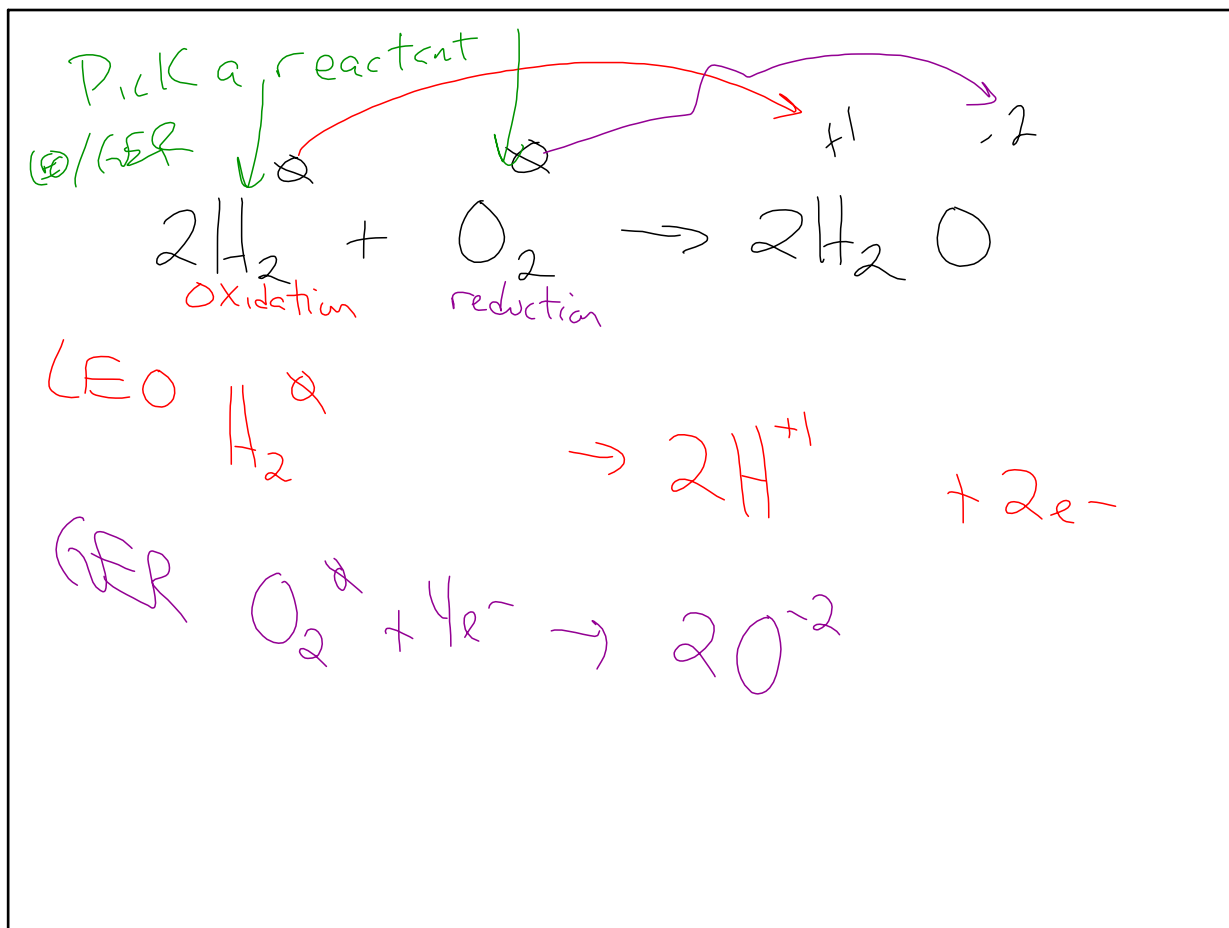 Pick a reactant
LEO/GER
0 0 +1 -2
2H₂ + O₂ → 2H₂O
oxidation reduction
LEO H₂⁰ → 2H⁺¹ + 2e⁻
GER O₂⁰ + 4e⁻ → 2O⁻²